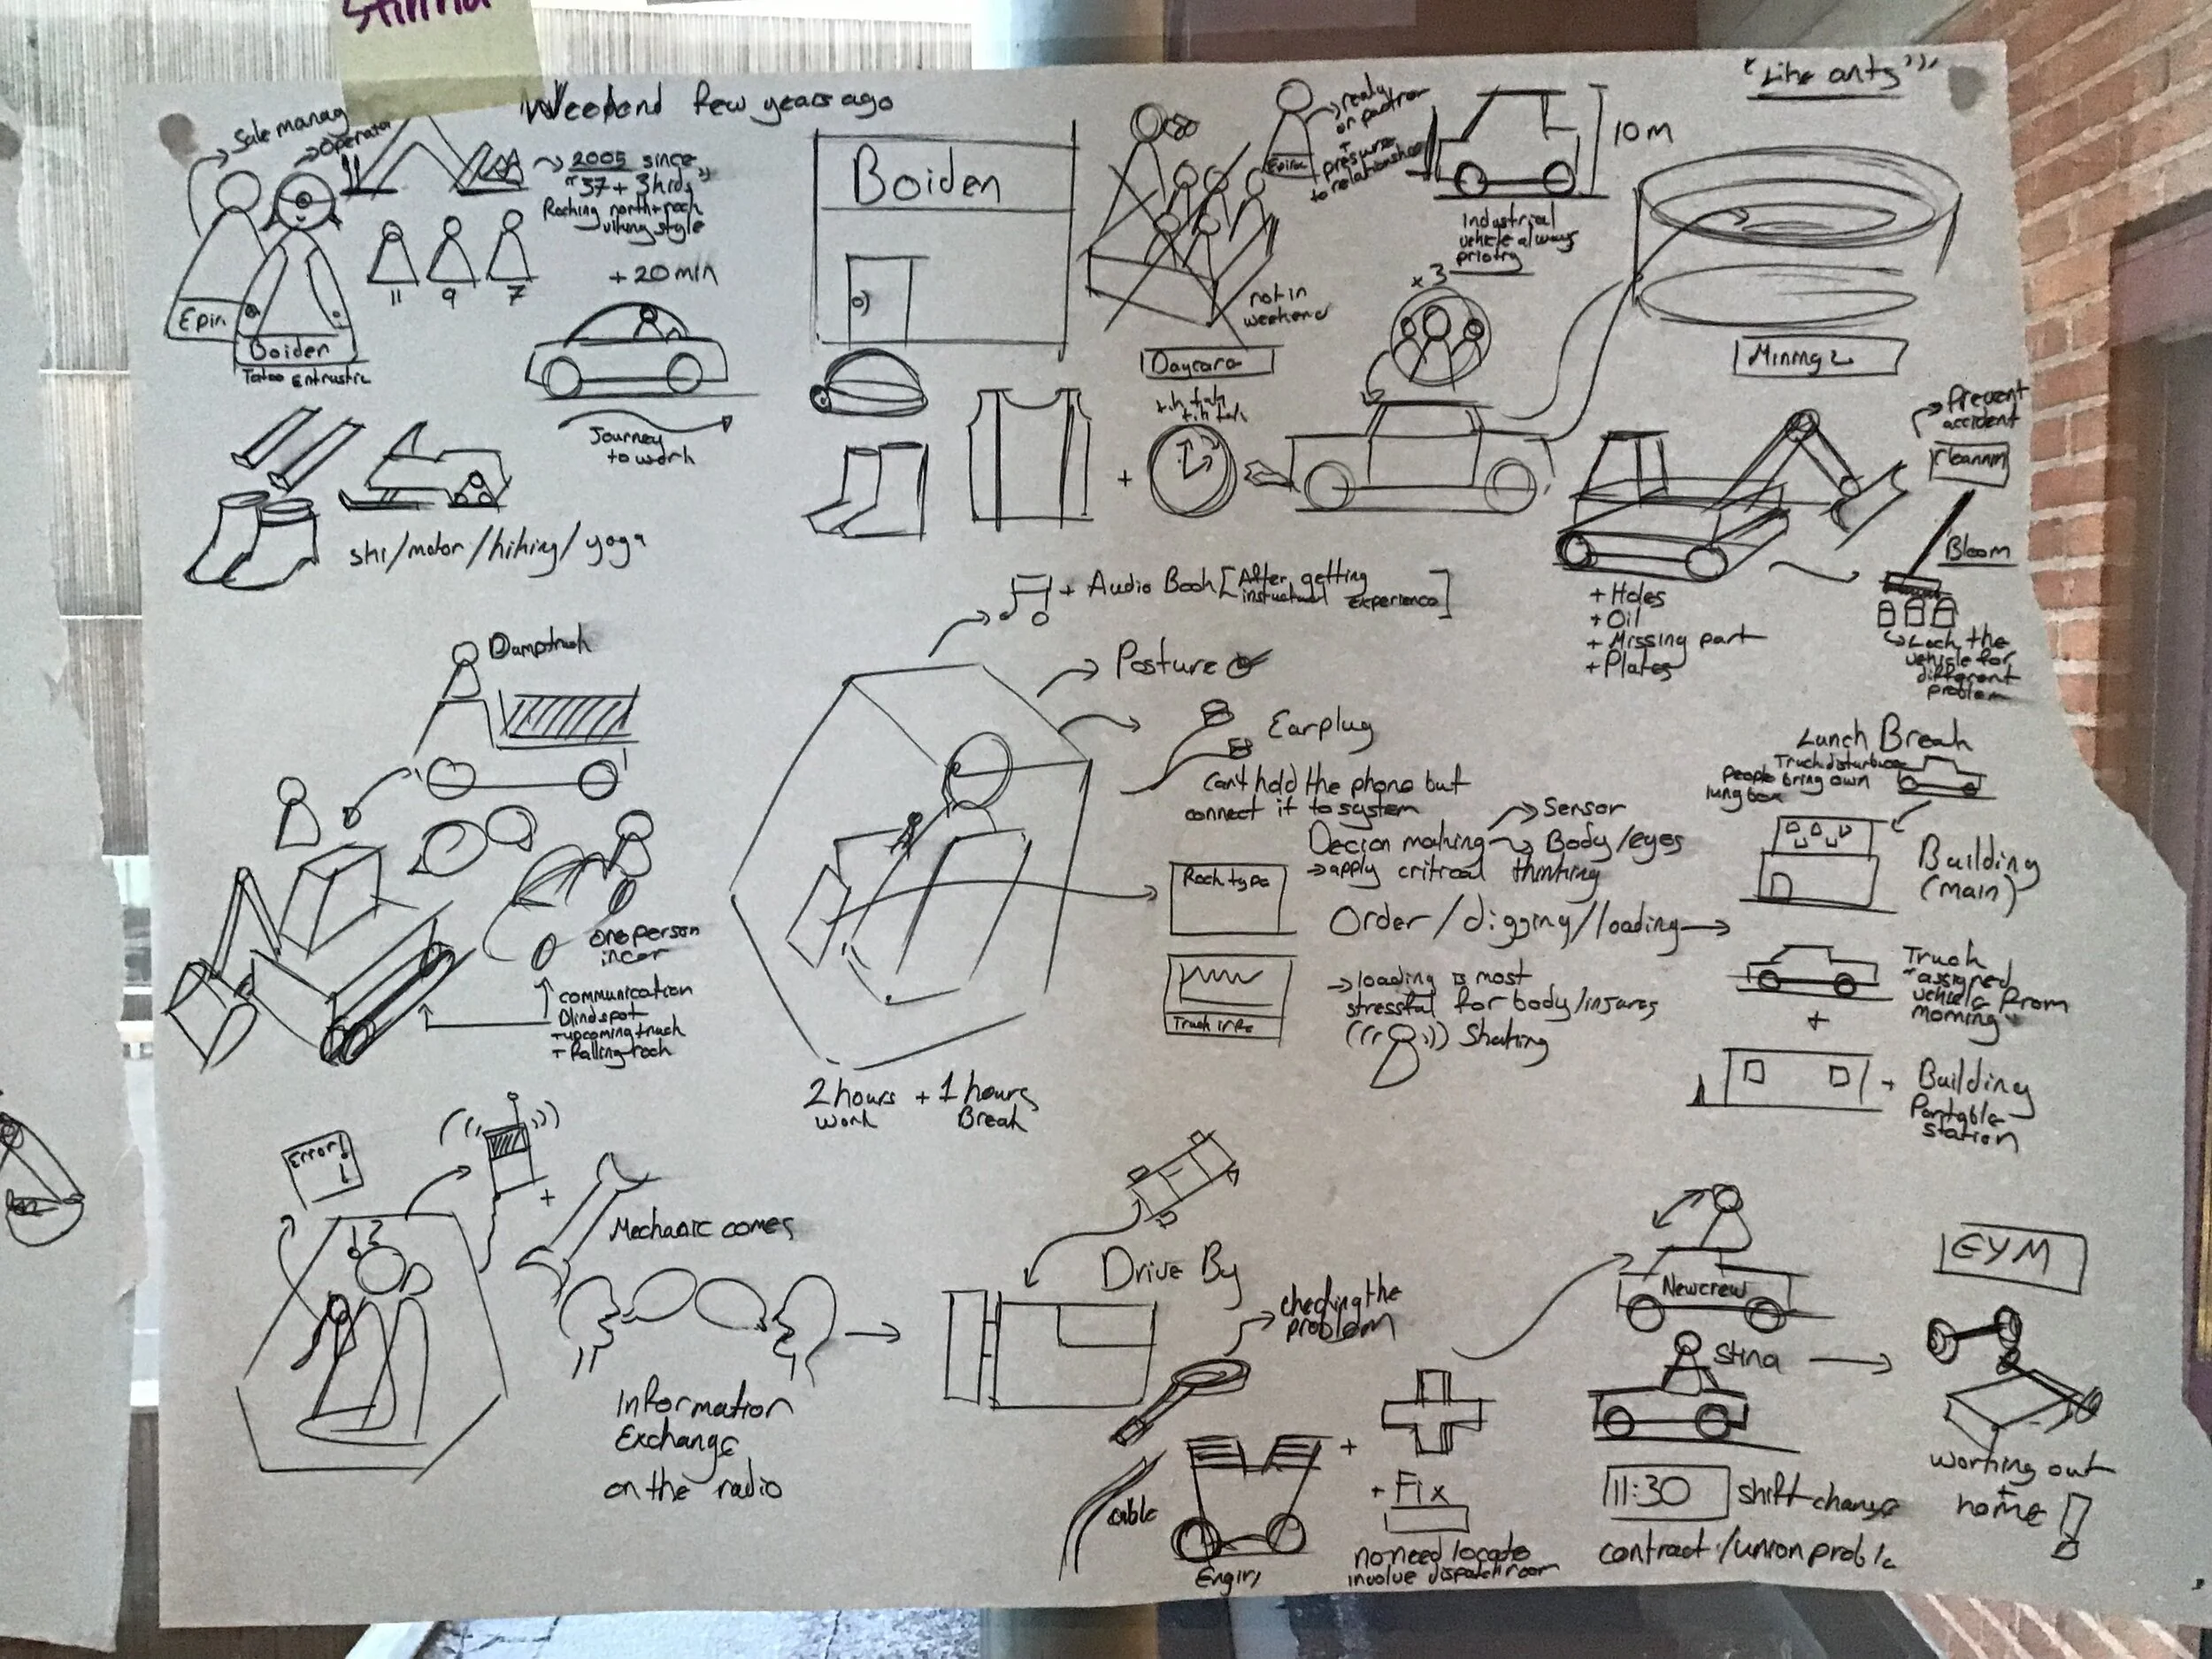 Weekend few years ago
"Like ants"
Sale manag
Operato
2005 since
"37 + 3 kids"
Rocking north + rock
viking style
11 9 7
Epir
Boiden
+ 20 min
Journey
to work
ski/motor/hiking/yoga
Boiden
not in
weekend
Daycare
tik tak
tik tak
+
→ ready
or partner
+
pressure
to relationship
10 M
Industrial
vehicle always
priotry
x 3
Minmg
Prevent
accident
Bloom
+ Holes
+ Oil
+ Missing part
+ Plates
Lock the
vehicle for
different
problem
Damptruck
one person
in car
communication
Blindspot
+ upcoming truck
+ falling rock
+ Audio Book [After getting
instuctional experience]
Posture
Earplug
Can't hold the phone but
connect it to system
Decion making
→ Sensor
→ Body/eyes
→ apply critical thinking
Rock type
Order/digging/loading →
Truck info
→ loading is most
stressful for body/insures
((( ))) Shaking
2 hours + 1 hours
work Break
Lunch Break
Truck disturbuse
people bring own
lung box
Building
(main)
Truck
"assigned
vehicle from
morning"
+
+ Building
Portable
station
Error!
+
Mechanic comes
Information
Exchange
on the radio
Drive By
checking the
problem
cable
+
+ Fix
no need locate
involve dispatch room
Newcrew
Stina
11:30 shift change
contract/union proble
GYM
working out
+
home!